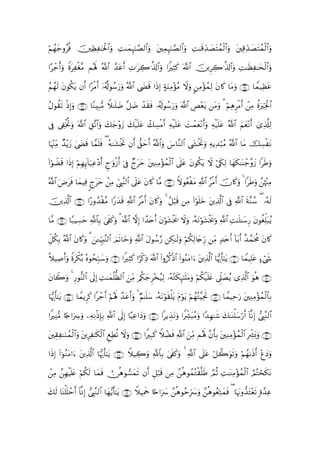 وَٱلْمُتَصَدِّقِينَ وَٱلْمُتَصَدِّقَٰتِ وَٱلصَّٰٓئِمِينَ وَٱلصَّٰٓئِمَٰتِ وَٱلْحَٰفِظِينَ فُرُوجَهُمْ
وَٱلْحَٰفِظَٰتِ وَٱلذَّٰكِرِينَ ٱللَّهَ كَثِيرًا وَٱلذَّٰكِرَٰتِ أَعَدَّ ٱللَّهُ لَهُم مَّغْفِرَةً وَأَجْرًا
عَظِيمًا ﴿٣٥﴾ وَمَا كَانَ لِمُؤْمِنٍ وَلَا مُؤْمِنَةٍ إِذَا قَضَى ٱللَّهُ وَرَسُولُهُۥٓ أَمْرًا أَن يَكُونَ لَهُمُ
ٱلْخِيَرَةُ مِنْ أَمْرِهِمْ ۗ وَمَن يَعْصِ ٱللَّهَ وَرَسُولَهُۥ فَقَدْ ضَلَّ ضَلَٰلًا مُّبِينًا ﴿٣٦﴾ وَإِذْ تَقُولُ
لِلَّذِىٓ أَنْعَمَ ٱللَّهُ عَلَيْهِ وَأَنْعَمْتَ عَلَيْهِ أَمْسِكْ عَلَيْكَ زَوْجَكَ وَٱتَّقِ ٱللَّهَ وَتُخْفِى فِى
نَفْسِكَ مَا ٱللَّهُ مُبْدِيهِ وَتَخْشَى ٱلنَّاسَ وَٱللَّهُ أَحَقُّ أَن تَخْشَىٰهُ ۖ فَلَمَّا قَضَىٰ زَيْدٌ مِّنْهَا
وَطَرًا زَوَّجْنَٰكَهَا لِكَىْ لَا يَكُونَ عَلَى ٱلْمُؤْمِنِينَ حَرَجٌ فِىٓ أَزْوَٰجِ أَدْعِيَآئِهِمْ إِذَا قَضَوْا۟
مِنْهُنَّ وَطَرًا ۚ وَكَانَ أَمْرُ ٱللَّهِ مَفْعُولًا ﴿٣٧﴾ مَّا كَانَ عَلَى ٱلنَّبِىِّ مِنْ حَرَجٍ فِيمَا فَرَضَ ٱللَّهُ
لَهُۥ ۖ سُنَّةَ ٱللَّهِ فِى ٱلَّذِينَ خَلَوْا۟ مِن قَبْلُ ۚ وَكَانَ أَمْرُ ٱللَّهِ قَدَرًا مَّقْدُورًا ﴿٣٨﴾ ٱلَّذِينَ
يُبَلِّغُونَ رِسَٰلَٰتِ ٱللَّهِ وَيَخْشَوْنَهُۥ وَلَا يَخْشَوْنَ أَحَدًا إِلَّا ٱللَّهَ ۗ وَكَفَىٰ بِٱللَّهِ حَسِيبًا ﴿٣٩﴾ مَّا
كَانَ مُحَمَّدٌ أَبَآ أَحَدٍ مِّن رِّجَالِكُمْ وَلَٰكِن رَّسُولَ ٱللَّهِ وَخَاتَمَ ٱلنَّبِيِّۦنَ ۗ وَكَانَ ٱللَّهُ بِكُلِّ
شَىْءٍ عَلِيمًا ﴿٤٠﴾ يَٰٓأَيُّهَا ٱلَّذِينَ ءَامَنُوا۟ ٱذْكُرُوا۟ ٱللَّهَ ذِكْرًا كَثِيرًا ﴿٤١﴾ وَسَبِّحُوهُ بُكْرَةً وَأَصِيلًا
﴿٤٢﴾ هُوَ ٱلَّذِى يُصَلِّى عَلَيْكُمْ وَمَلَٰٓئِكَتُهُۥ لِيُخْرِجَكُم مِّنَ ٱلظُّلُمَٰتِ إِلَى ٱلنُّورِ ۚ وَكَانَ
بِٱلْمُؤْمِنِينَ رَحِيمًا ﴿٤٣﴾ تَحِيَّتُهُمْ يَوْمَ يَلْقَوْنَهُۥ سَلَٰمٌ ۚ وَأَعَدَّ لَهُمْ أَجْرًا كَرِيمًا ﴿٤٤﴾ يَٰٓأَيُّهَا
ٱلنَّبِىُّ إِنَّآ أَرْسَلْنَٰكَ شَٰهِدًا وَمُبَشِّرًا وَنَذِيرًا ﴿٤٥﴾ وَدَاعِيًا إِلَى ٱللَّهِ بِإِذْنِهِۦ وَسِرَاجًا مُّنِيرًا
﴿٤٦﴾ وَبَشِّرِ ٱلْمُؤْمِنِينَ بِأَنَّ لَهُم مِّنَ ٱللَّهِ فَضْلًا كَبِيرًا ﴿٤٧﴾ وَلَا تُطِعِ ٱلْكَٰفِرِينَ وَٱلْمُنَٰفِقِينَ
وَدَعْ أَذَىٰهُمْ وَتَوَكَّلْ عَلَى ٱللَّهِ ۚ وَكَفَىٰ بِٱللَّهِ وَكِيلًا ﴿٤٨﴾ يَٰٓأَيُّهَا ٱلَّذِينَ ءَامَنُوٓا۟ إِذَا
نَكَحْتُمُ ٱلْمُؤْمِنَٰتِ ثُمَّ طَلَّقْتُمُوهُنَّ مِن قَبْلِ أَن تَمَسُّوهُنَّ فَمَا لَكُمْ عَلَيْهِنَّ مِنْ
عِدَّةٍ تَعْتَدُّونَهَا ۖ فَمَتِّعُوهُنَّ وَسَرِّحُوهُنَّ سَرَاحًا جَمِيلًا ﴿٤٩﴾ يَٰٓأَيُّهَا ٱلنَّبِىُّ إِنَّآ أَحْلَلْنَا لَكَ